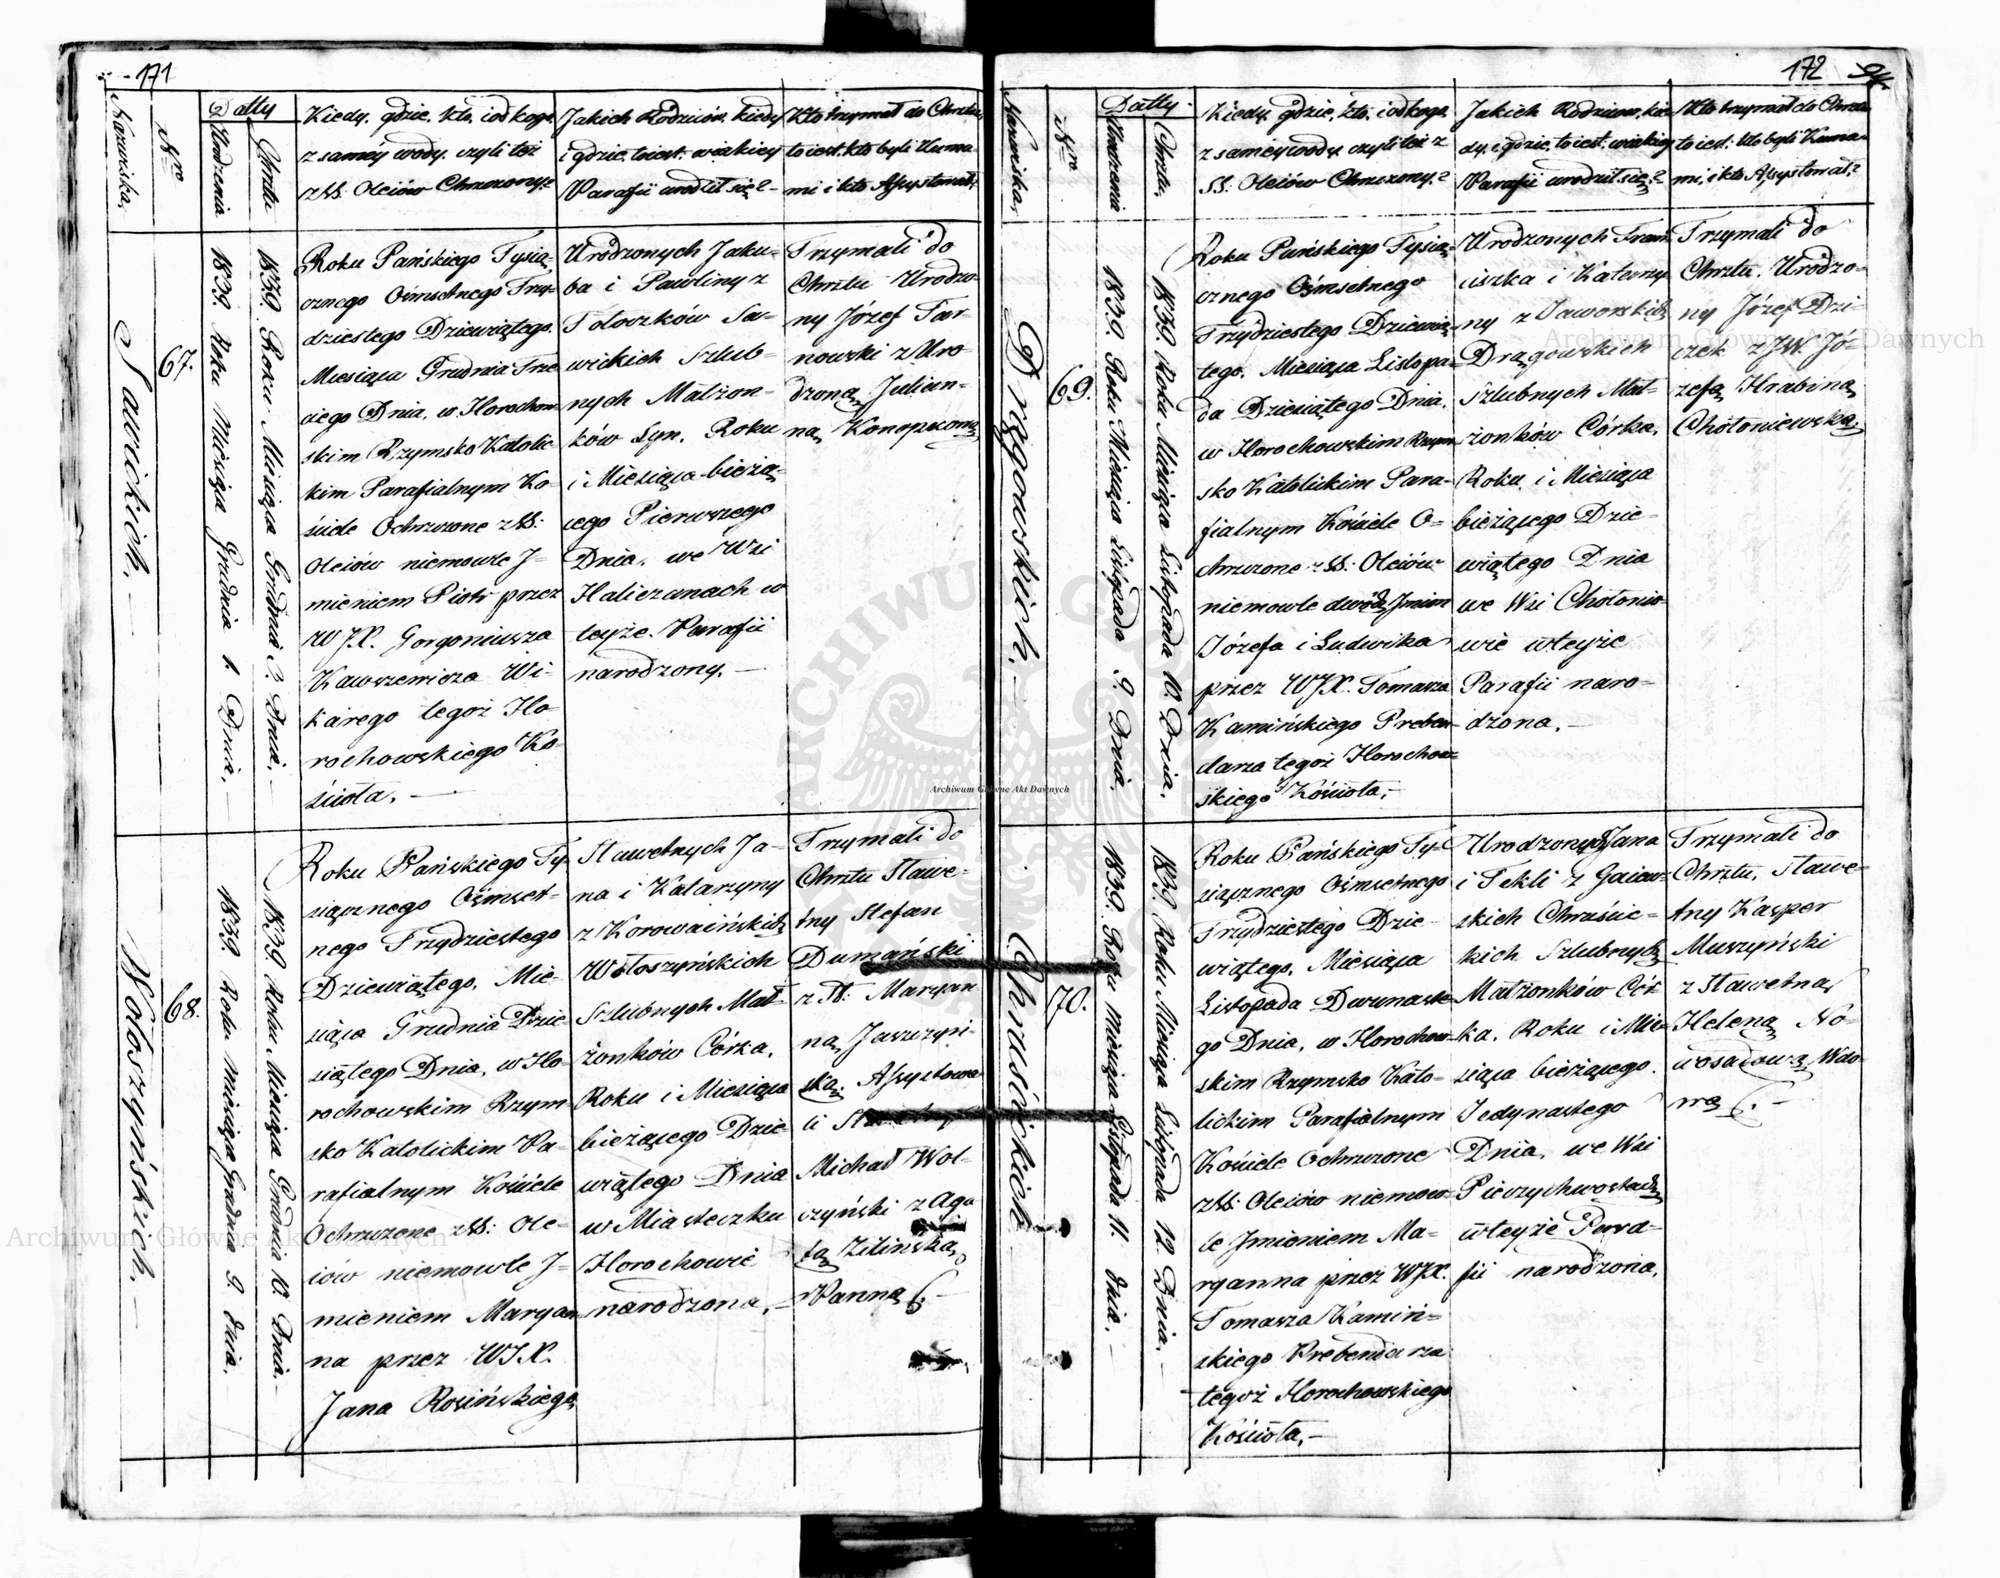 171
Nazwiska,
Nro
Datty
Urodzenia
Chrztu
Kiedy, gdzie, kto, i od kogo
z samey wody, czyli też
z SS. Oleiów Chrzczony?
Jakich Rodziców, kiedy
i gdzie, to iest: w iakiey
Parafii urodził się? –
Kto trzymał do Chrztu,
to iest: kto byli Kuma-
mi i kto Assystował?
Sawickich. –
67.
1839. Roku Miesiąca Grudnia 1. Dnia.
1839. Roku Miesiąca Grudnia 3. Dnia.
Roku Pańskiego Tysią-
cznego Ośmsetnego Trzy-
dziestego Dziewiątego.
Miesiąca Grudnia Trze
ciego Dnia, w Horochow-
skim Rzymsko Katolic-
kim Parafialnym Ko-
ściele Ochrzczone z SS:
Oleiów niemowle J-
mieniem Piotr przez
WJX. Gorgoniusza
Kawszewicza Wi-
karego tegoż Ho-
rochowskiego Ko-
ścioła. –
Urodzonych Jaku-
ba i Pawliny z
Tołoczków Sa-
wickich Szlub-
nych Małżon-
ków Syn, Roku
i Miesiąca bieżą-
cego Pierwszego
Dnia, we Wsi
Haliczanach w
teyże Parafii
narodzony. –
Trzymali do
Chrztu Urodzo-
ny Józef Tar
nowski z Uro-
dzoną Julian-
ną Konopkową
Wołoszyńskich. –
68.
1839. Roku Miesiąca Grudnia 9. Dnia.
1839. Roku Miesiąca Grudnia 10. Dnia.
Roku Pańskiego Ty-
siącznego Ośmset-
nego Trzydziestego
Dziewiątego, Mie-
siąca Grudnia Dzie-
siątego Dnia, w Ho-
rochowskim Rzym
sko Katolickim Pa-
rafialnym Kościele
Ochrzczone z SS: Ole-
iów niemowle J-
mieniem Maryan-
na przez WJX.
Jana Rosińskiego,
Sławetnych Ja-
na i Katarzyny
z Korowaińskich
Wołoszyńskich
Szlubnych Mał-
żonków Córka,
Roku i Miesiąca
bieżącego Dzie-
wiątego Dnia
w Miasteczku
Horochowie
narodzona. –
Trzymali do
Chrztu Sławe-
tny Stefan
Dumański
z S: Maryan
ną Jaszczyń-
ską. Assystowa
li
Michał Wol-
czyński z Aga
tą Zilińską,
Panną
172
Nazwiska,
Nro
Datty
Urodzenia
Chrztu,
Kiedy, gdzie, kto, i od kogo
z samey wody, czyli też z
SS: Oleiów Chrzczony?
Jakich Rodziców, kie-
dy, i gdzie, to iest: w iakiey
Parafii urodził się?
Kto trzymał do Chrztu
to iest: kto byli Kuma-
mi, i kto Assystował?
Drągowskich. –
69.
1839. Roku Miesiąca Listopada 9. Dnia.
1839. Roku Miesiąca Listopada 10. Dnia.
Roku Pańskiego Tysią-
cznego Ośmsetnego
Trzydziestego Dziewią-
tego, Miesiąca Listopa-
da Dziesiątego Dnia,
w Horochowskim Rzym-
sko Katolickim Para-
fialnym Kościele O-
chrzczone z SS: Oleiów
niemowle dwóch Jmion
Józefa i Ludwika
przez WJX. Tomasza
Kamińskiego Preben-
darza tegoż Horochow-
skiego Kościoła, –
Urodzonych Fran-
ciszka i Katarzy-
ny z Jaworskich
Drągowskich
Szlubnych Mał-
żonków Córka,
Roku i Miesiąca
bieżącego Dzie-
wiątego Dnia
we Wsi Chołonio-
wie w teyże
Parafii naro-
dzona. –
Trzymali do
Chrztu, Urodzo-
ny Józef Dzi-
czek z JW. Jó-
zefą Hrabiną
Chołoniewską.
Chruścickich
70.
1839. Roku Miesiąca Listopada 11. Dnia. –
1839. Roku Miesiąca Listopada 12. Dnia. –
Roku Pańskiego Ty-
siącznego Ośmsetnego
Trzydziestego Dzie-
wiątego, Miesiąca
Listopada Dwunaste-
go Dnia, w Horochow-
skim Rzymsko Kato-
lickim Parafialnym
Kościele Ochrzczone
z SS: Oleiów niemow-
le Jmieniem Ma-
ryanna przez WJX.
Tomasza Kamiń-
skiego Prebendarza
tegoż Horochowskiego
Kościoła, –
Urodzonych Jana
i Tekli z Gaiew-
skich Chruścic-
kich Szlubnych
Małżonków Cór-
ka, Roku i Mie-
siąca bieżącego
Jedynastego
Dnia, we Wsi
Pieczychwostach
w teyże Para-
fii narodzona.
Trzymali do
Chrztu, Sławe-
tny Kasper
Muszyński
z Sławetną
Heleną No-
wosadową Wdo-
wą. –
Archiwum Główne Akt Dawnych
Archiwum Główne Akt Dawnych
Archiwum Główne Akt Dawnych